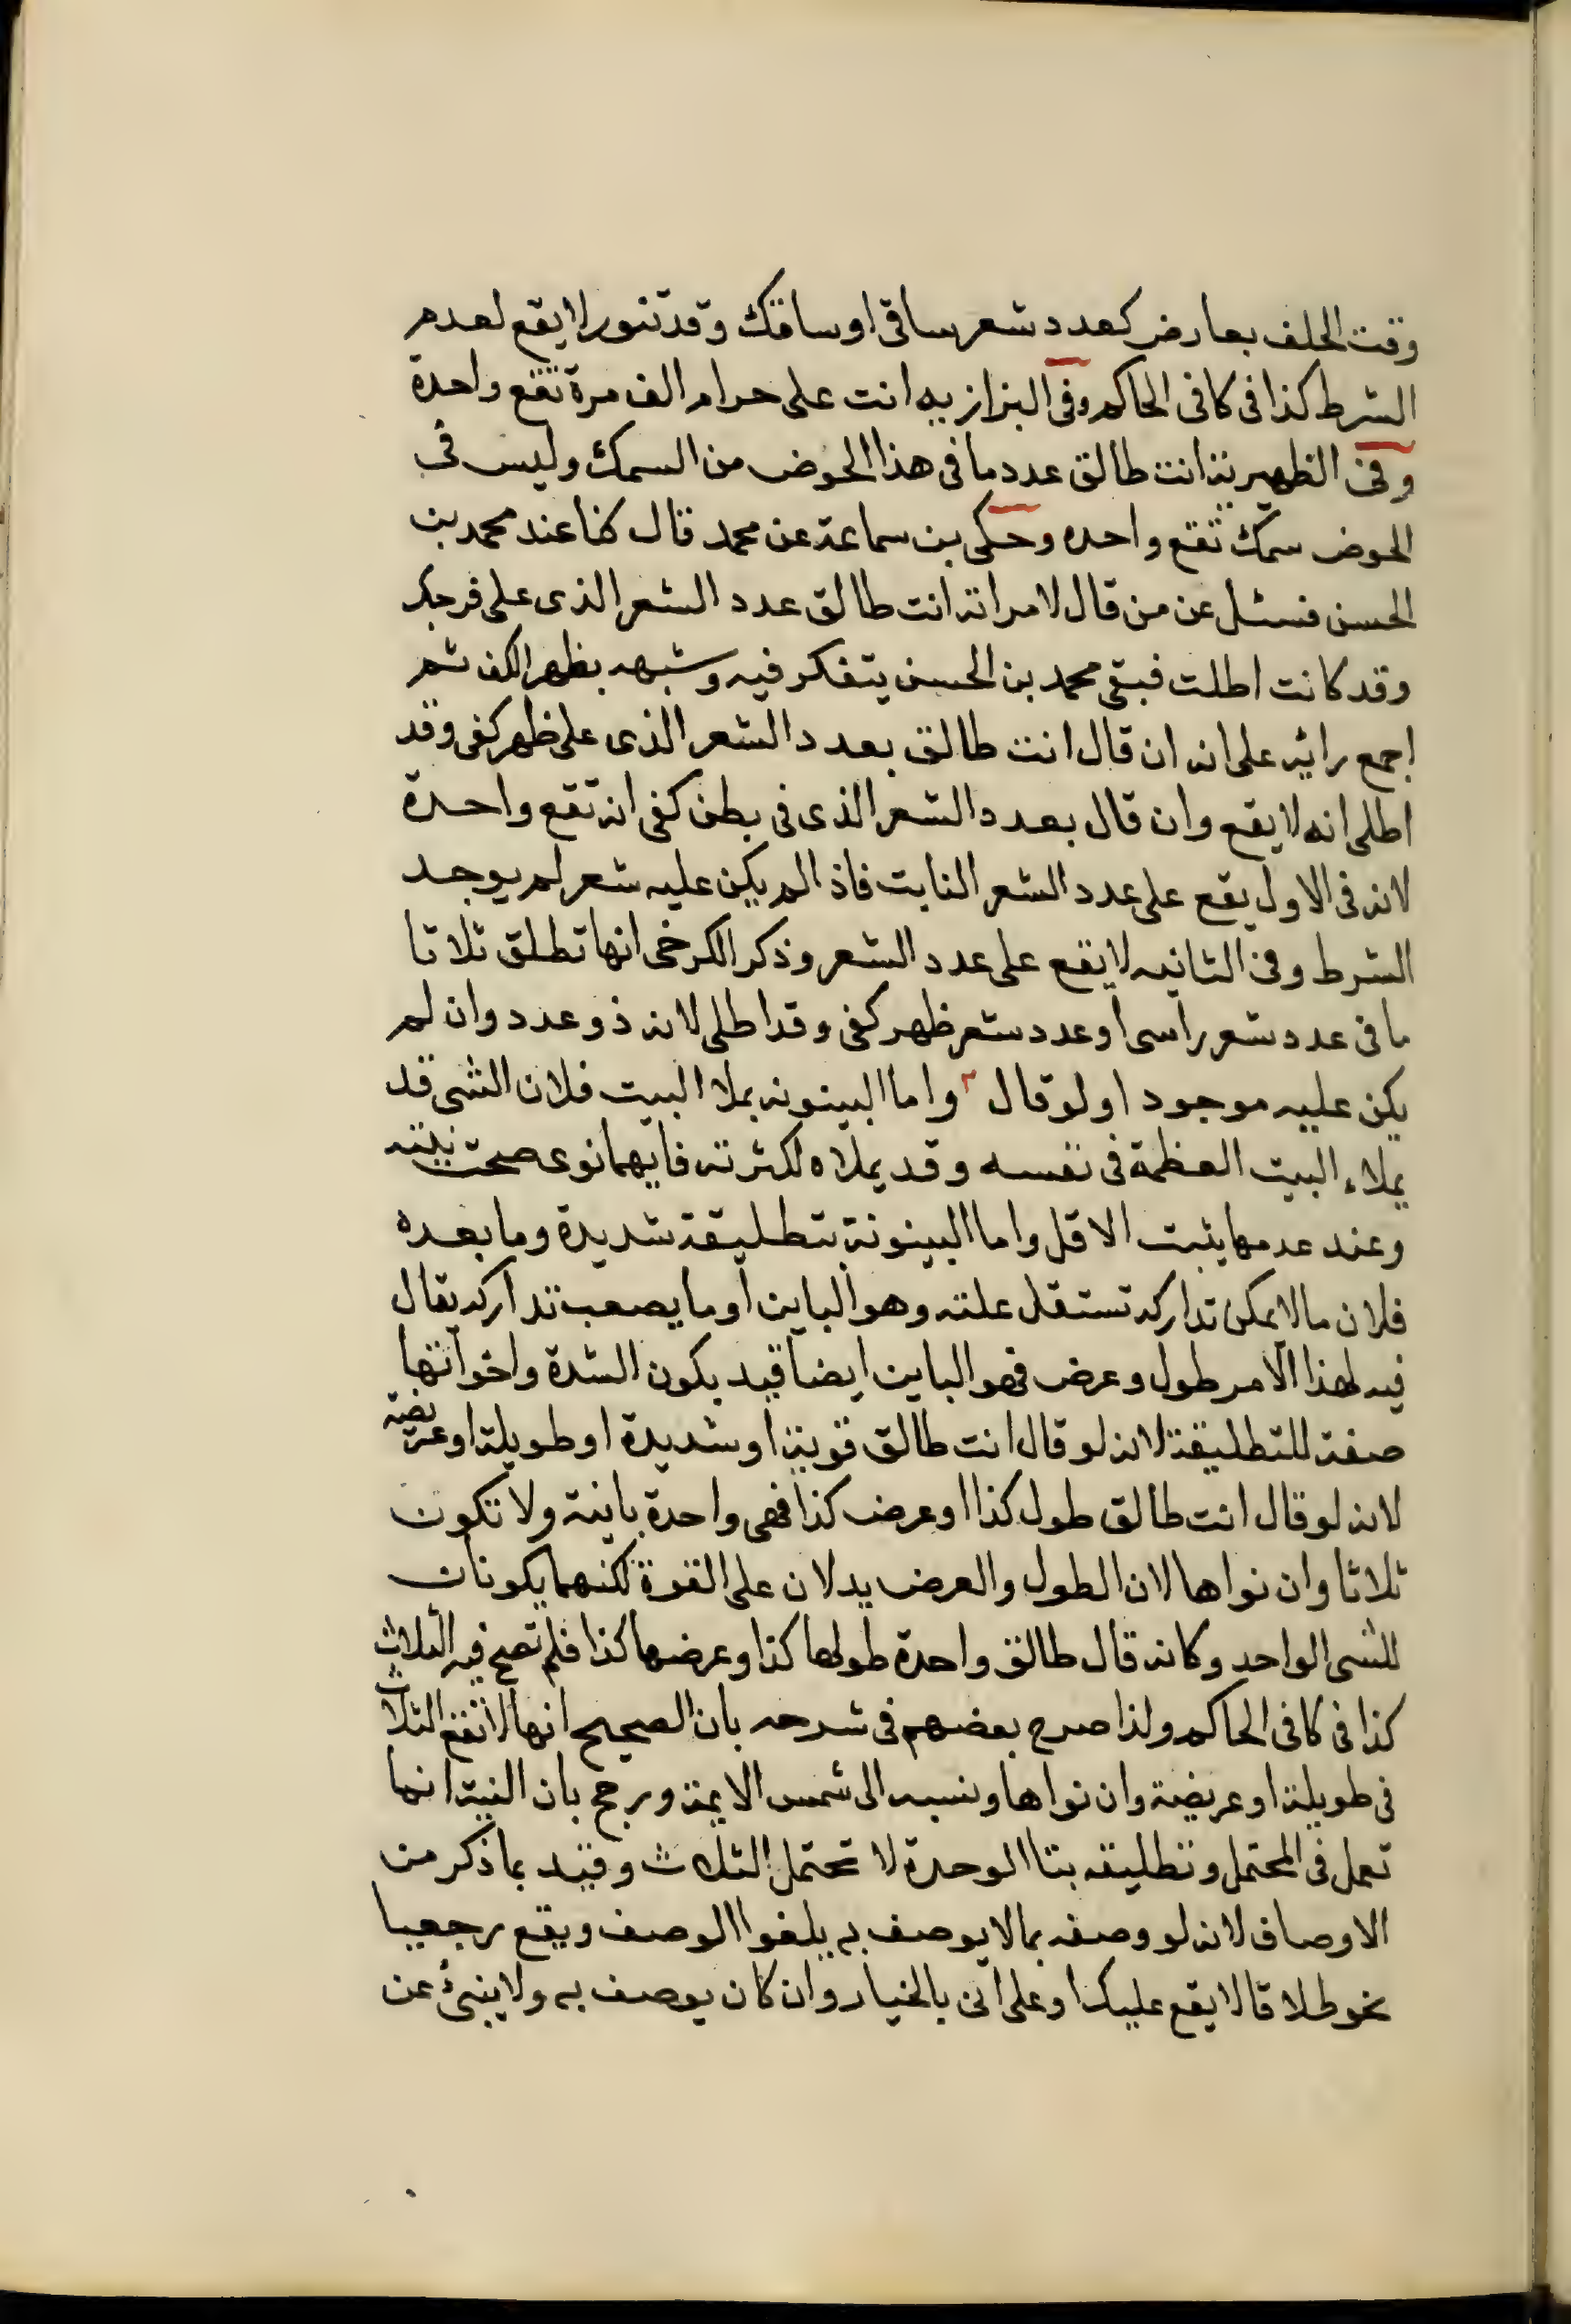 وقت الحلف بعارض كعدد شعر ساقي او ساقك وقد تنور لا يقع لعدم
الشرط كذا فى كافى الحاكم وفى البزازيه انت على حرام الف مرة تقع واحدة
وفى الظهيرية انت طالق عدد ما فى هذا الحوض من السمك وليس فى
الحوض سمك تقع واحده وحكى بن سماعة عن محمد قال كنا عند محمد بن
الحسن فسئل عن من قال لامراته انت طالق عدد الشعر الذى على فرجك
وقد كانت اطلت فبقى محمد بن الحسن يتفكر فيه وشبهه بظهر الكف ثم
اجمع رائيه على انه ان قال انت طالق بعدد الشعر الذى على ظهر كفى وقد
اطلى انه لا يقع وان قال بعدد الشعر الذى فى بطن كفى انه تقع واحدة
لانه فى الاول يقع على عدد الشعر النابت فاذا لم يكن عليه شعر لم يوجد
الشرط وفى الثانيه لا يقع على عدد الشعر وذكر الكرخى انها تطلق ثلاثا
ما فى عدد شعر راسى او عدد شعر ظهر كفى وقد اطلى لانه ذو عدد وان لم
يكن عليه موجود او لو قال واما البينونه بملا البيت فلان الشى قد
يملاء البيت العظمة فى نفسه وقد يملاه لكثرته فايهما نوى صحت نيته
وعند عدمها يثبت الاقل واما البينونة بتطليقة شديدة وما بعده
فلان ما لا يمكن تداركه تستقل علته وهو الباين او ما يصعب تداركه يقال
فيه لهذا الامر طول وعرض فهو الباين ايضا قيد بكون الشدة واخواتها
صفة للتطليقة لانه لو قال انت طالق قوية او شديدة او طويلة او عريضة
لانه لو قال انت طالق طول كذا او عرض كذا فهى واحدة باينة ولا تكون
ثلاثا وان نواها لان الطول والعرض يدلان على القوة لكنهما يكونان
للشى الواحد وكانه قال طالق واحدة طولها كذا وعرضها كذا فلم تصح فيه الثلاث
كذا فى كافى الحاكم ولذا صرح بعضهم فى شرحه بان الصحيح انها لا تقع الثلاث
فى طويلة او عريضة وان نواها ونسبه الى شمس الايمة ورجح بان النية انما
تعمل فى المحتمل وتطليقه بتا الوحدة لا تحتمل الثلاث وقيد بما ذكر من
الاوصاف لانه لو وصفه بما لا يوصف به يلغوا الوصف ويقع رجعيا
نحو طلاقا لا يقع عليك او على انى بالخيار وان كان يوصف به ولا ينبئ عن